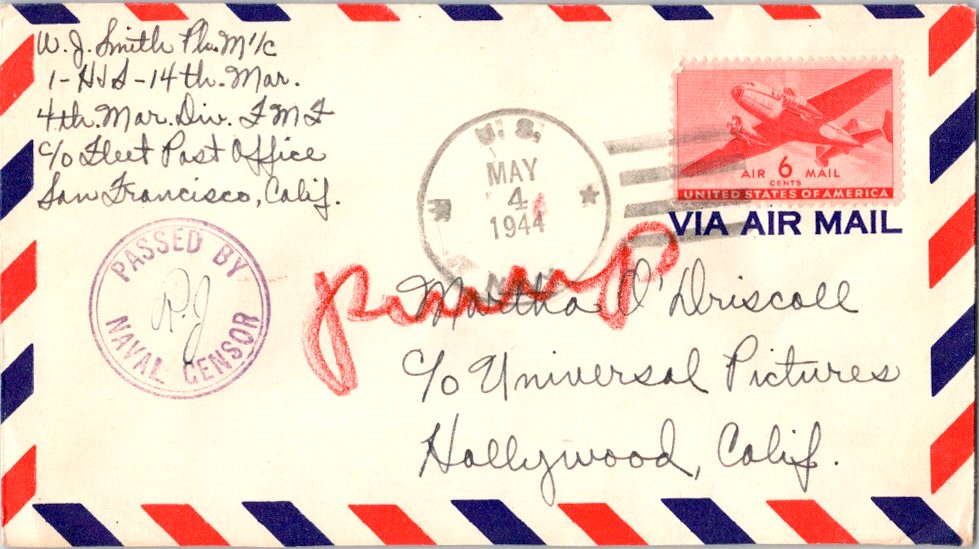 W. J. Smith Ph. M 1/c
1-H&S-14th. Mar.
4th. Mar. Div. F M F
c/o Fleet Post Office
San Francisco, Calif.
PASSED BY
NAVAL CENSOR
U. S.
MAY
4
1944
AIR 6 MAIL
CENTS
UNITED STATES OF AMERICA
VIA AIR MAIL
Martha O'Driscoll
c/o Universal Pictures
Hollywood, Calif.